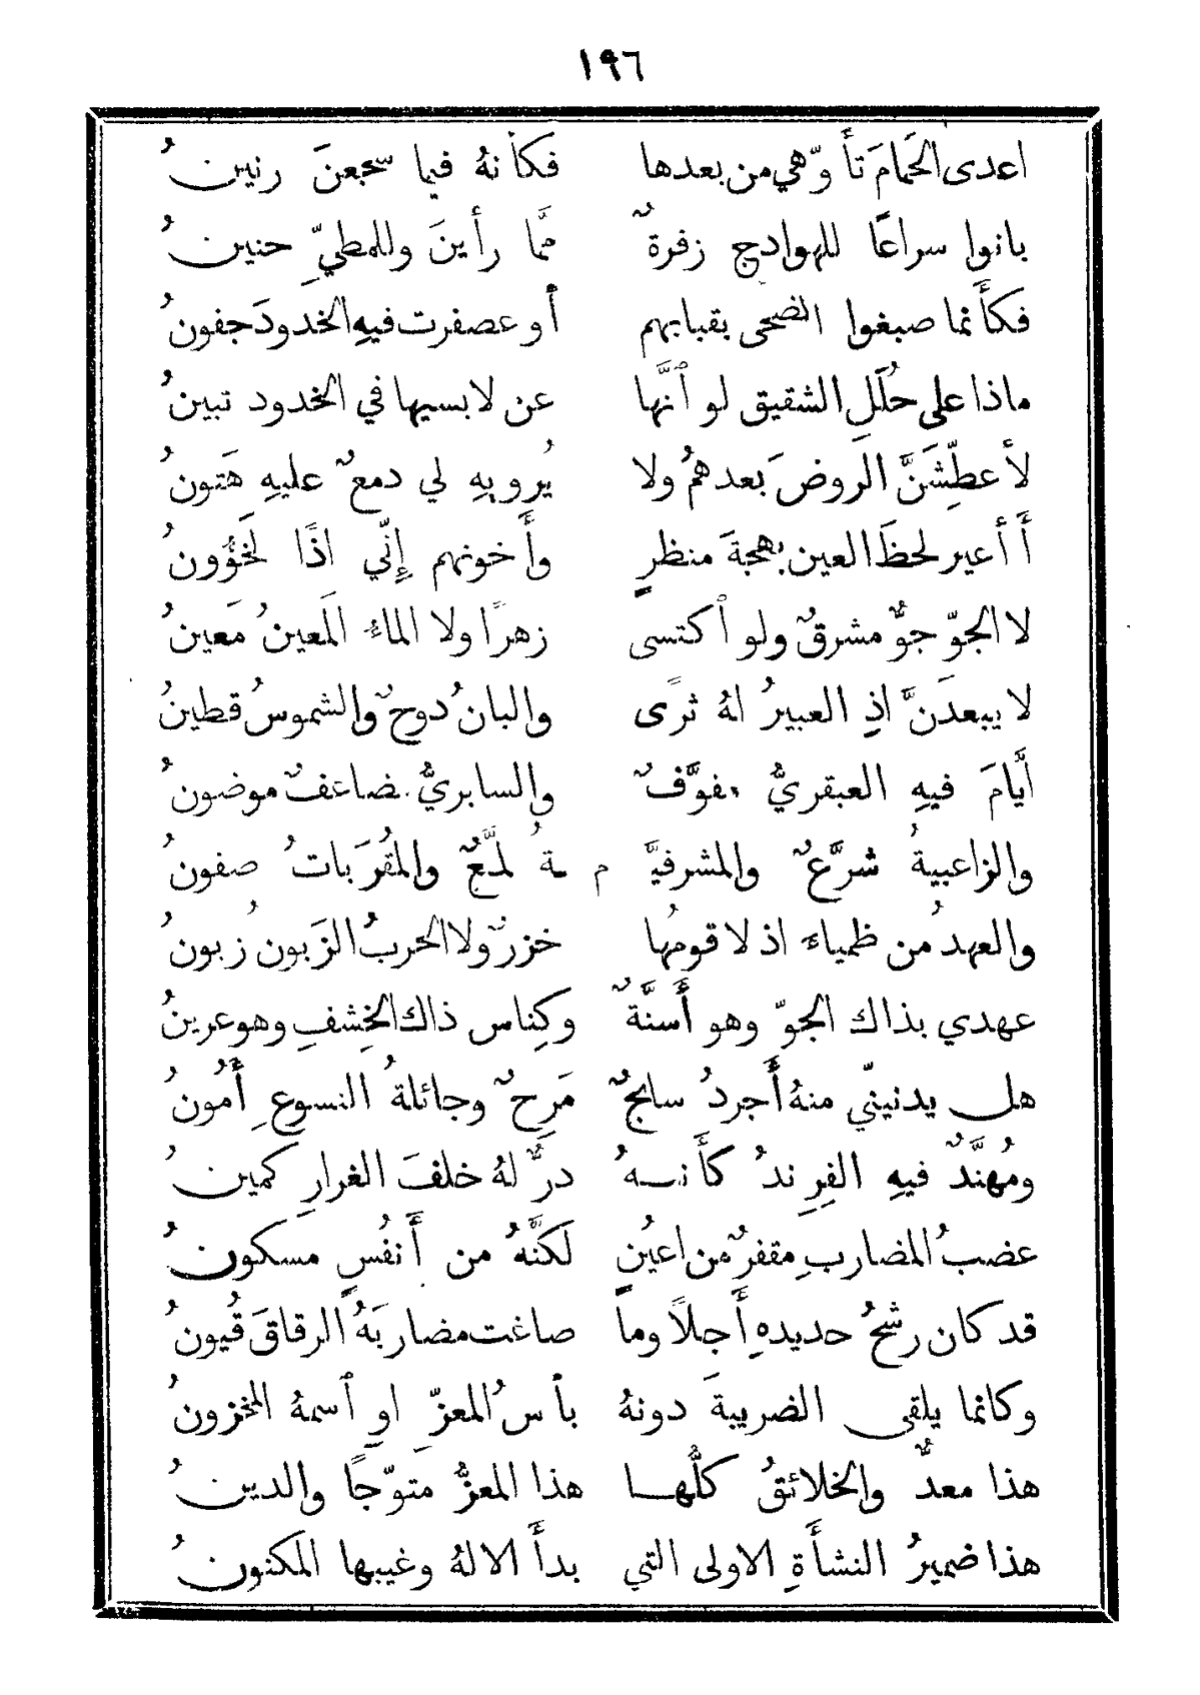 ١٩٦
اعدى الحَمامَ تأَوّهي من بعدها فكأنهُ فيما سجعنَ رنينُ
بانوا سراعًا للهوادج زفرةٌ ممَّا رأَينَ وللمطيِّ حنينُ
فكأَنما صبغوا الضحى بقبابهم أو عصفرت فيهِ الخدودَ جفونُ
ماذا على حُلَلِ الشقيق لو ٱنَّها عن لابسيها في الخدود تبينُ
لأُعطِّشَنَّ الروضَ بعدهمُ ولا يُرويهِ لي دمعٌ عليهِ هَتونُ
أَأُعير لحظَ العين بهجةَ منظرٍ وأَخونهم إِنّي اذًا لخَؤُونُ
لا الجوّ جوٌّ مشرقٌ ولو ٱكتسى زهرًا ولا الماءُ المَعينُ مَعينُ
لا يبعدَنَّ اذِ العبيرُ لهُ ثرًى والبانُ دوحٌ والشموسُ قطينُ
أَيَّامَ فيهِ العبقريُّ مفوَّفٌ والسابريُّ مضاعفٌ موضونُ
والزاعبيةُ شرَّعٌ والمشرفيَّ م ـةُ لمَّعٌ والمُقرَباتُ صفونُ
والعهدُ من ظمياءَ اذ لا قومُها خزرٌ ولا الحربُ الزَبون زبونُ
عهدي بذاك الجوّ وهو أَسنَّةٌ وكِناس ذاك الخِشفِ وهو عرينُ
هل يدنينّي منهُ أَجردُ سابحٌ مَرِحٌ وجائلةُ النسوعِ أَمُونُ
ومُهنَّدٌ فيهِ الفِرِندُ كأَنـهُ درٌّ لهُ خلفَ الغرارِ كمينُ
عضبُ المضاربِ مقفرٌ من اعيُنٍ لكنَّهُ من أَنفُسٍ مسكونُ
قد كان رشحُ حديدهِ أَجلاً وما صاغت مضاربَهُ الرقاقَ قُيونُ
وكانما يلقى الضريبةَ دونهُ بأسُ المعزّ اوِ ٱسمهُ المخزونُ
هذا معدٌّ والخلائقُ كلُّهـا هذا المعزُّ متوّجًا والدينُ
هذا ضميرُ النشأَةِ الاولى التي بدأَ الالهُ وغيبها المكنونُ